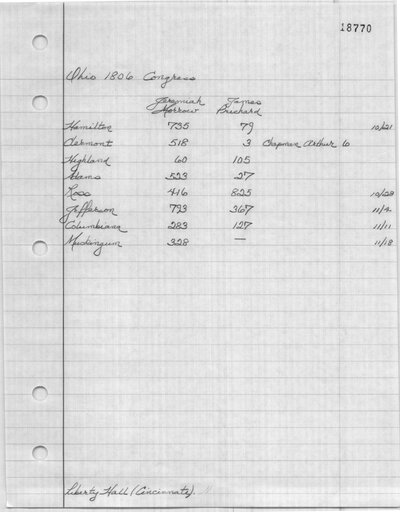 18770
Ohio 1806 Congress
Jeremiah Morrow James Pritchard
Hamilton 735 79 10/21
Clermont 518 3 Chapman Arthur 6
Highland 60 105
Adams 523 27
Ross 416 825 10/28
Jefferson 793 367 11/4
Columbiana 283 127 11/11
Muskingum 328 — 11/18
Liberty Hall (Cincinnati).